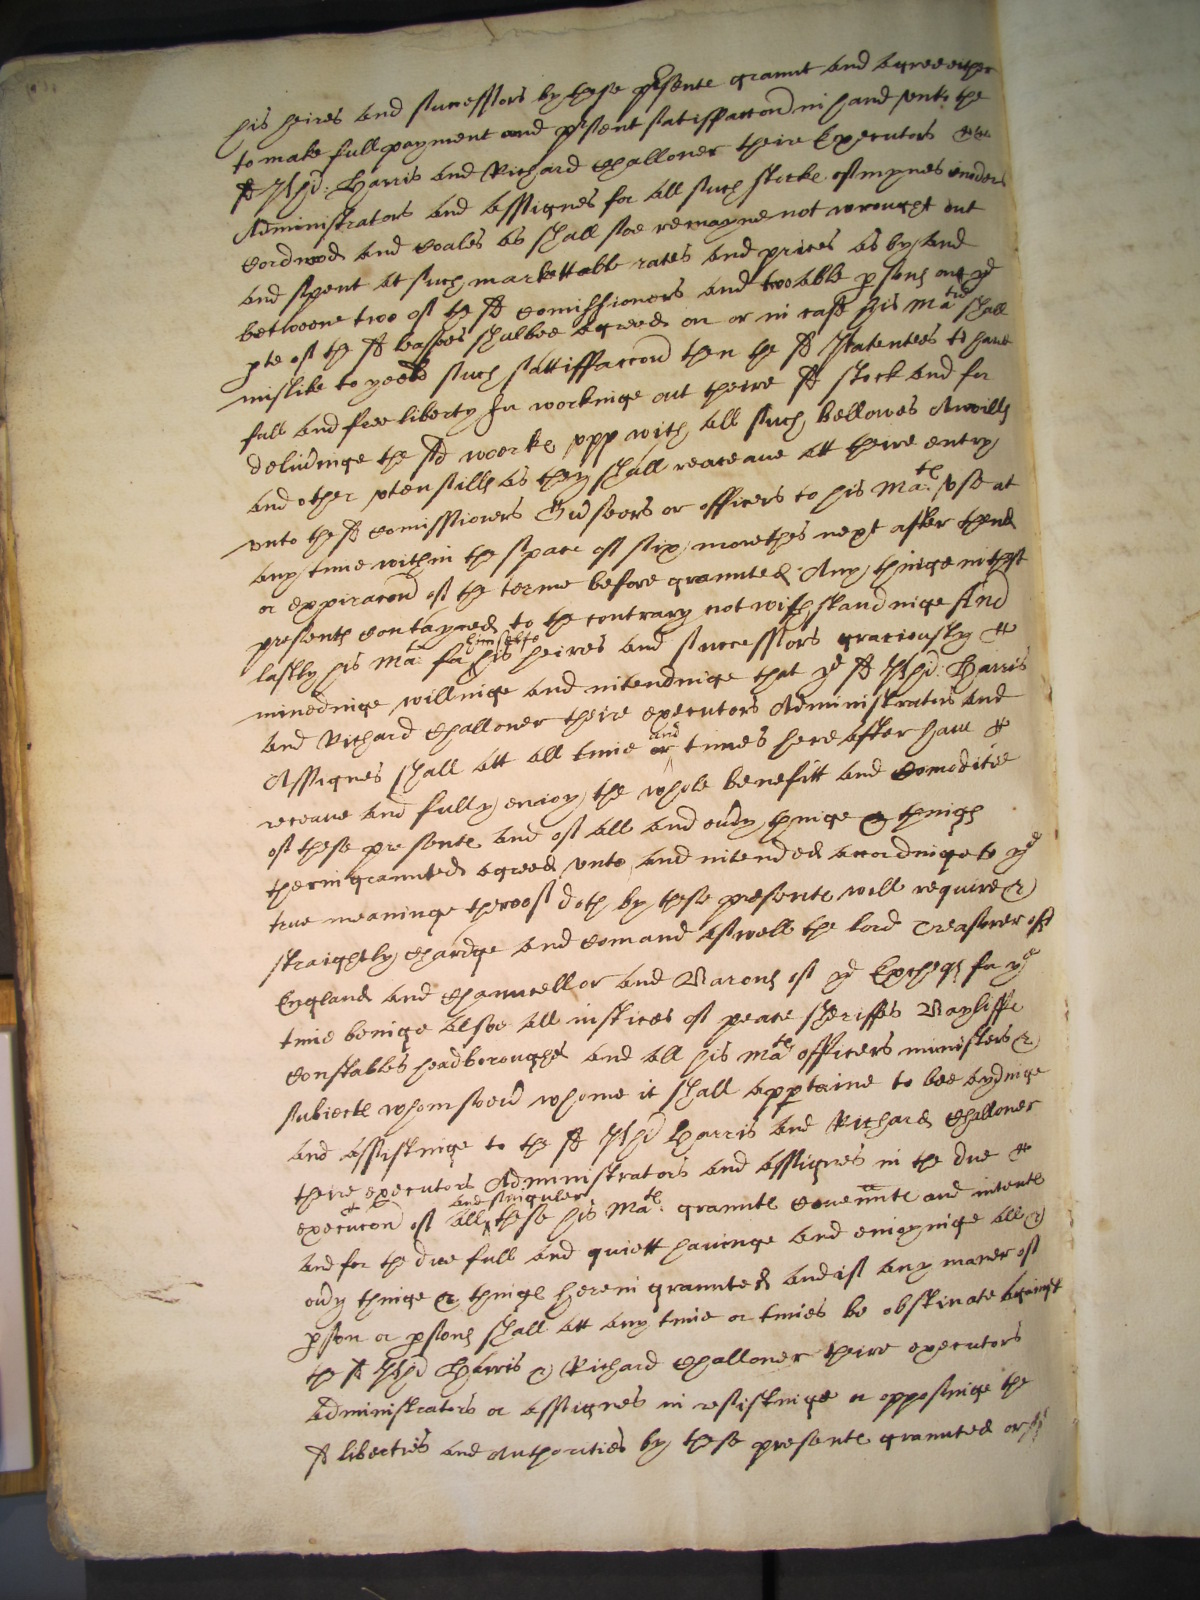 his heires and successors by these psente graunt and agree eyther
to make full payment and psent satisffaccon in hand unto the
sd Phil: Harris and Richard Challoner theire Executors
Administrators and assignes for all such stocke of mynes cinders
Cordwood and Coales as shall soe remayne not wrought out
and spent at such markettable rates and prices as by and
betweene two of the sd Comissioners and two able psons on ye
pte of the sd leassees shalbee agreed on or in case his Matie shall
mislike to yeeld such sattisffaccon then the sd Patentees to have
full and free liberty for workinge out theire sd stock and for
deliuinge the sd worke upp with all such bellowes Anvills
and other utensills as they shall receave att theire entry
unto the sd Comissioners Ouseors or officers to his Mates use at
any time within the space of six monethes next after thend
or expiracon of the terme before graunted Any thinge in these
presents Contayned to the contrary not withstandinge And
lastly his Ma: for himselfe his heires and successors graciously
mindinge willinge and intendinge that ye sd Phil: Harris
and Richard Challoner theire executors Administrators and
Assignes shall att all time or and times here after have
receave and fully enioy the whole benefitt and Comoditie
of these presente and of all and euy thinge & things
therin graunted agreed unto and intended accordinge to ye
true meaninge thereof doth by these presente will require &
straightly Chardge and Comand aswell the lord Treasurer of
England and Chauncellor and Barons of ye Excheqr for ye
time beinge alsoe all iustices of peace sheriffes Bayliffe
Constables headboroughes and all his Mates officers ministers &
subiecte whomsoeu whome it shall apptaine to bee aydinge
and assistinge to the sd Phil Harris and Richard Challoner
theire executors Administrators and assignes in the due
execucon of all and singuler these his Mates graunte Covennte and intente
and for the due full and quiett havinge and enioyinge all &
euy thinge & thinge herein graunted and if any maner of
pson or psons shall att any time or times be obstinate against
the sd Phil Harris & Richard Challoner theire executors
administrators or assignes in resistinge or opposinge the
sd liberties and authorities by these presente graunted or